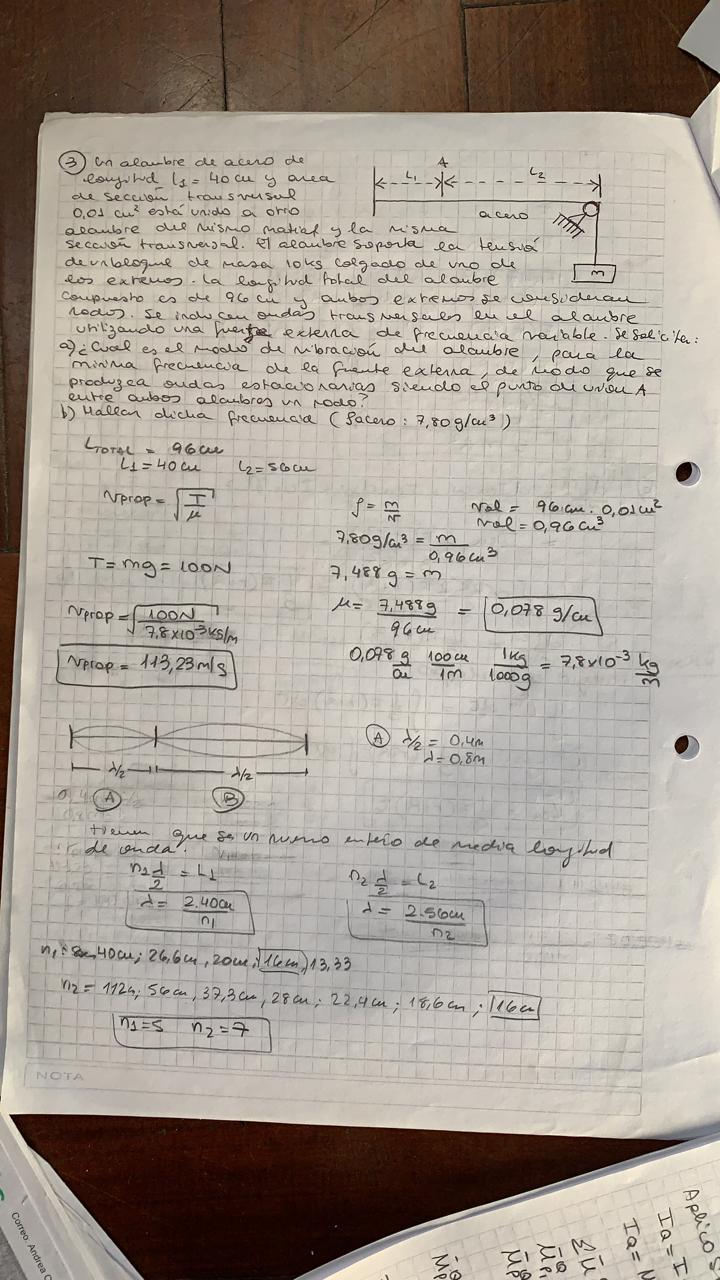 ③ Un alambre de acero de
longitud L1 = 40 cm y area
de sección transversal
0,01 cm² está unido a otro
alambre del mismo matial y la misma
sección transversal. El alambre soporta la tensión
de un bloque de masa 10 kg colgado de uno de
los extremos. La longitud total del alambre
compuesto es de 96 cm y ambos extremos se consideran
nodos. Se inducen ondas transversales en el alambre
utilizando una fuerza externa de frecuencia variable. Se solicita:
a) ¿Cual es el modo de vibración del alambre, para la
mínima frecuencia de la fuente externa, de modo que se
produzca ondas estacionarias siendo el punto de unión A
entre ambos alambres un nodo?
b) Hallar dicha frecuencia (ρacero: 7,80 g/cm³)
A
L1
L2
acero
m
LTOTAL = 96 cm
L1 = 40 cm L2 = 56 cm
Vprop = √(T/μ)
ρ = m/V
Vol = 96 cm . 0,01 cm²
Vol = 0,96 cm³
7,80 g/cm³ = m/0,96 cm³
T = mg = 100N
7,488 g = m
μ = 7,488 g/96 cm = 0,078 g/cm
Vprop = √(100N/7,8x10⁻³ kg/m)
Vprop = 113,23 m/s
0,078 g/cm 100cm/1m 1kg/1000g = 7,8x10⁻³ kg/m
λ/2 λ/2
Ⓐ Ⓑ
Ⓐ λ/2 = 0,4m
λ = 0,8m
tienen que se un numero entero de media longitud
de onda.
n1 λ/2 = L1
n2 λ/2 = L2
λ = 2.40cm/n1
λ = 2.56cm/n2
40cm; 26,6cm, 20cm, 16cm, 13,33
n2 = 112; 56cm, 37,3cm, 28cm; 22,4cm; 18,6cm; 16cm
n1=5 n2=7
NOTA
Correo: Andrea
Aplico
Ia = I
Ia =